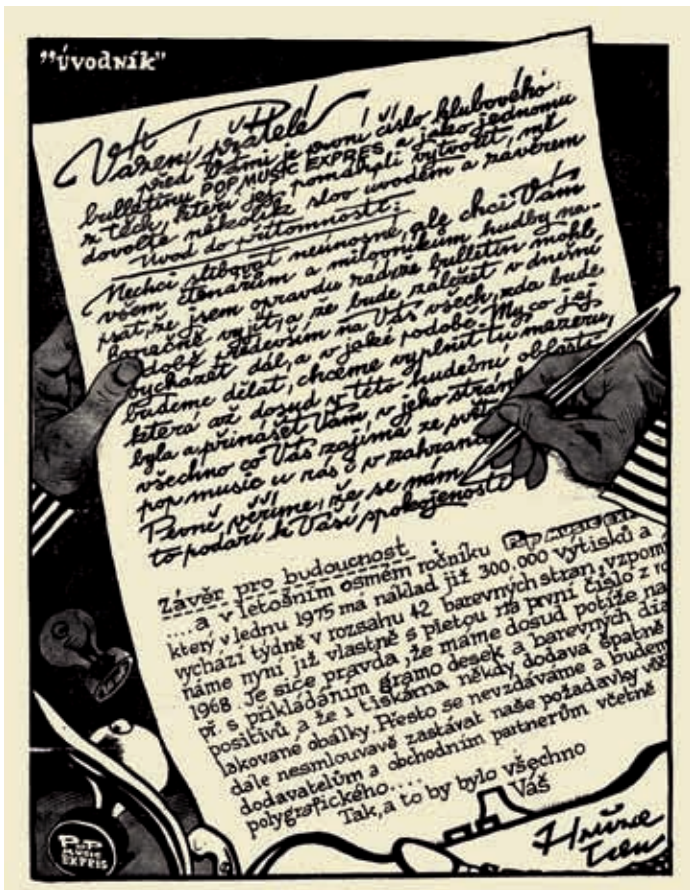 "Úvodník"
Vážení přátelé
před Vámi je první číslo klubového
bulletinu POP MUSIC EXPRES a jako jednomu
z těch, kteří jej pomáhali vytvořit, mi
dovolte několik slov úvodem a závěrem
Úvod do přítomnosti:
Nechci slibovat neúnosné, ale chci Vám
všem čtenářům a milovníkům hudby na-
psat, že jsem opravdu rád, že bulletin mohl
konečně vyjít, a že bude záležet v dnešní
době především na Vás všech, zda bude
vycházet dál, a v jaké podobě. My, co jej
budeme dělat, chceme vyplnit tu mezeru,
která až dosud v této hudební oblasti
byla a přinášet Vám v jeho stránk
všechno co Vás zajímá ze svět
pop music u nás i v zahranič
Pevně věříme, že se nám
to podaří k Vaší spokojenosti
Závěr pro budoucnost :
....a v letošním osmém ročníku POP MUSIC EX
který v lednu 1975 má náklad již 300.000 výtisků a
vychází týdně v rozsahu 42 barevných stran, vzpomí
náme nyní již vlastně s pietou na první číslo z ro
1968. Je sice pravda, že máme dosud potíže na
př. s přikládáním gramo desek a barevných dia
positivů a že i tiskárna někdy dodává špatně
lakované obálky. Přesto se nevzdáváme a budem
dále nesmlouvavě zastávat naše požadavky vůč
dodavatelům a obchodním partnerům včetně
polygrafického....
Tak, a to by bylo všechno
Váš
Hrůza
POP
MUSIC
EXPRES